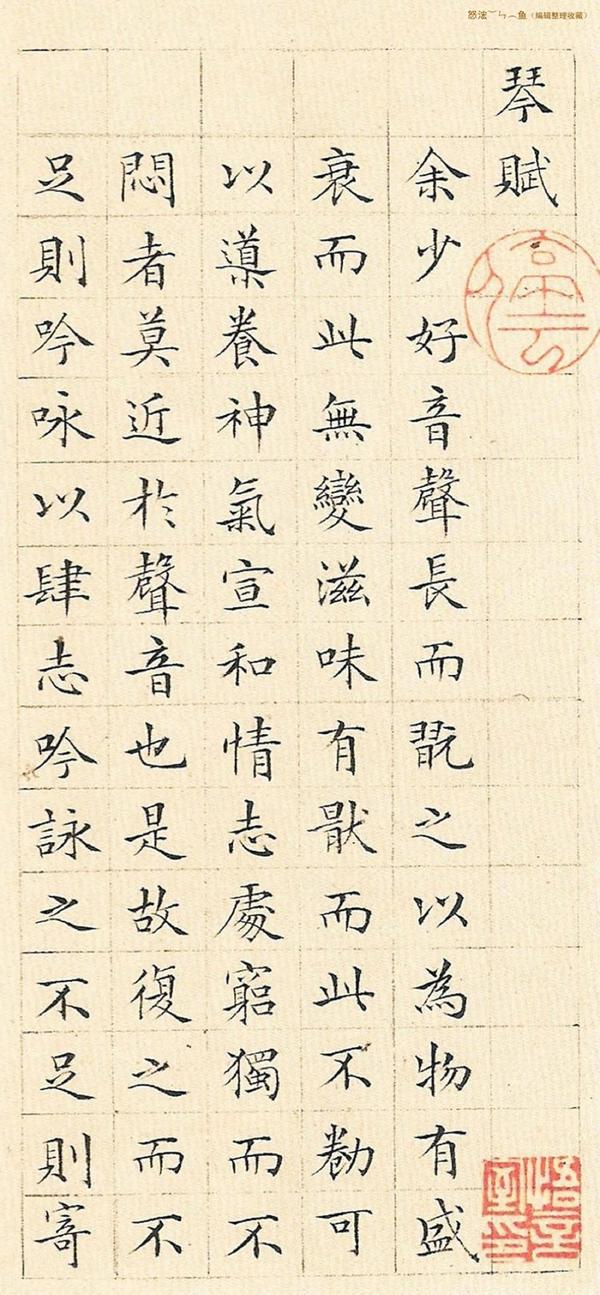 琴賦
余少好音聲長而翫之以為物有盛
衰而此無變滋味有猒而此不勌可
以導養神氣宣和情志處窮獨而不
悶者莫近於聲音也是故復之而不
足則吟咏以肆志吟詠之不足則寄
(编辑整理收藏)